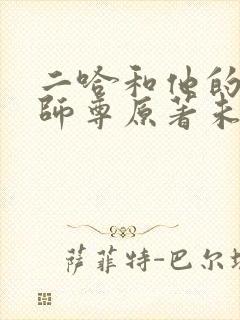 二哈和他的
師尊原著未
萨菲特-巴尔